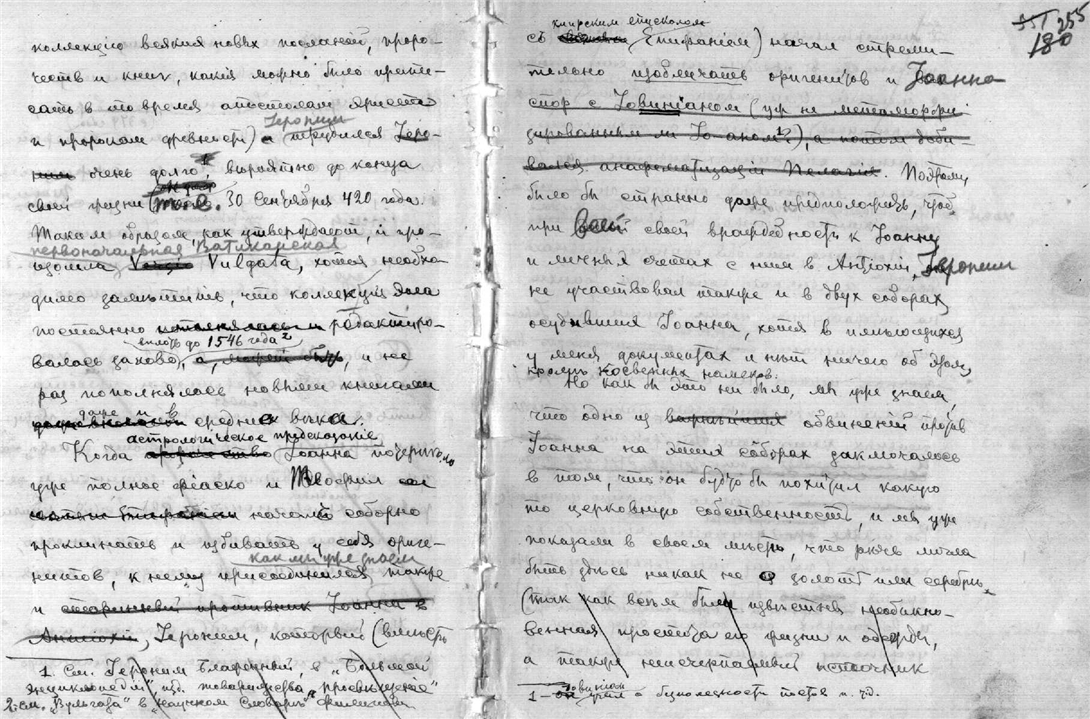 коллекцію всякихъ новых посланій, проро-
честв и книг, какія можно было припи-
сать в то время апостолам Христа
и пророкам древности) Іероним трудился
очень долго¹, вѣроятно до конца
своей жизни 30 Сентября 420 года.
Таким образом, как утверждают, и про-
изошла первоначальная Ватиканская Vulgata, хотя необхо-
димо замѣтить, что коллекція эта
постоянно редактиро-
валась заново, вплоть до 1546 года², и не
раз пополнялась новыми книгами
даже и в средніе вѣка.
Когда астрологическое предсказаніе Іоанна потерпѣло
уже полное фіаско и Теофил
начал соборно
проклинать и избивать у себя ориге-
нитов, к нему, как мы уже знаем, присоединился также
и старинный противник Іоанна в
Антіохіи, Іероним, который (вмѣстѣ
1. См. Іероним блаженный, в "Большой
энциклопедіи" изд. товарищества "просвѣщеніе"
2. см. "Вульгата" в научном словарѣ Филиппова
255
180
с кипрским епископом Епифаніем) начал стреми-
тельно изобличать оригенитов и Іоанна
спор с Іовиніаном (уж не метаморфи-
зированным ли Іоаном¹?), а потом доби-
вался анафематизаціи Пелагія. Поэтому
было бы странно даже предположить, чтоб
при всей своей враждебности к Іоанну
и личных счетах с ним в Антіохіи, Іероним
не участвовал также и в двух соборах,
осудивших Іоанна, хотя в имѣющихся
у меня документах и нѣт ничего об этом,
кромѣ косвенных намеков.
Но как бы это ни было, мы уже знаем,
что одно из обвиненій против
Іоанна на этих соборах заключалось
в том, что он будто бы похитил какую
то церковную собственность, и мы уже
показали в своем мѣстѣ, что рѣчь могла
быть здѣсь никак не о золотѣ или серебрѣ,
(так как всѣм была извѣстна необыкно-
венная простота его жизни и одежды,
а также неисчерпаемый источник
1 – Іовиніан учил о безполезности постов и. т.д.